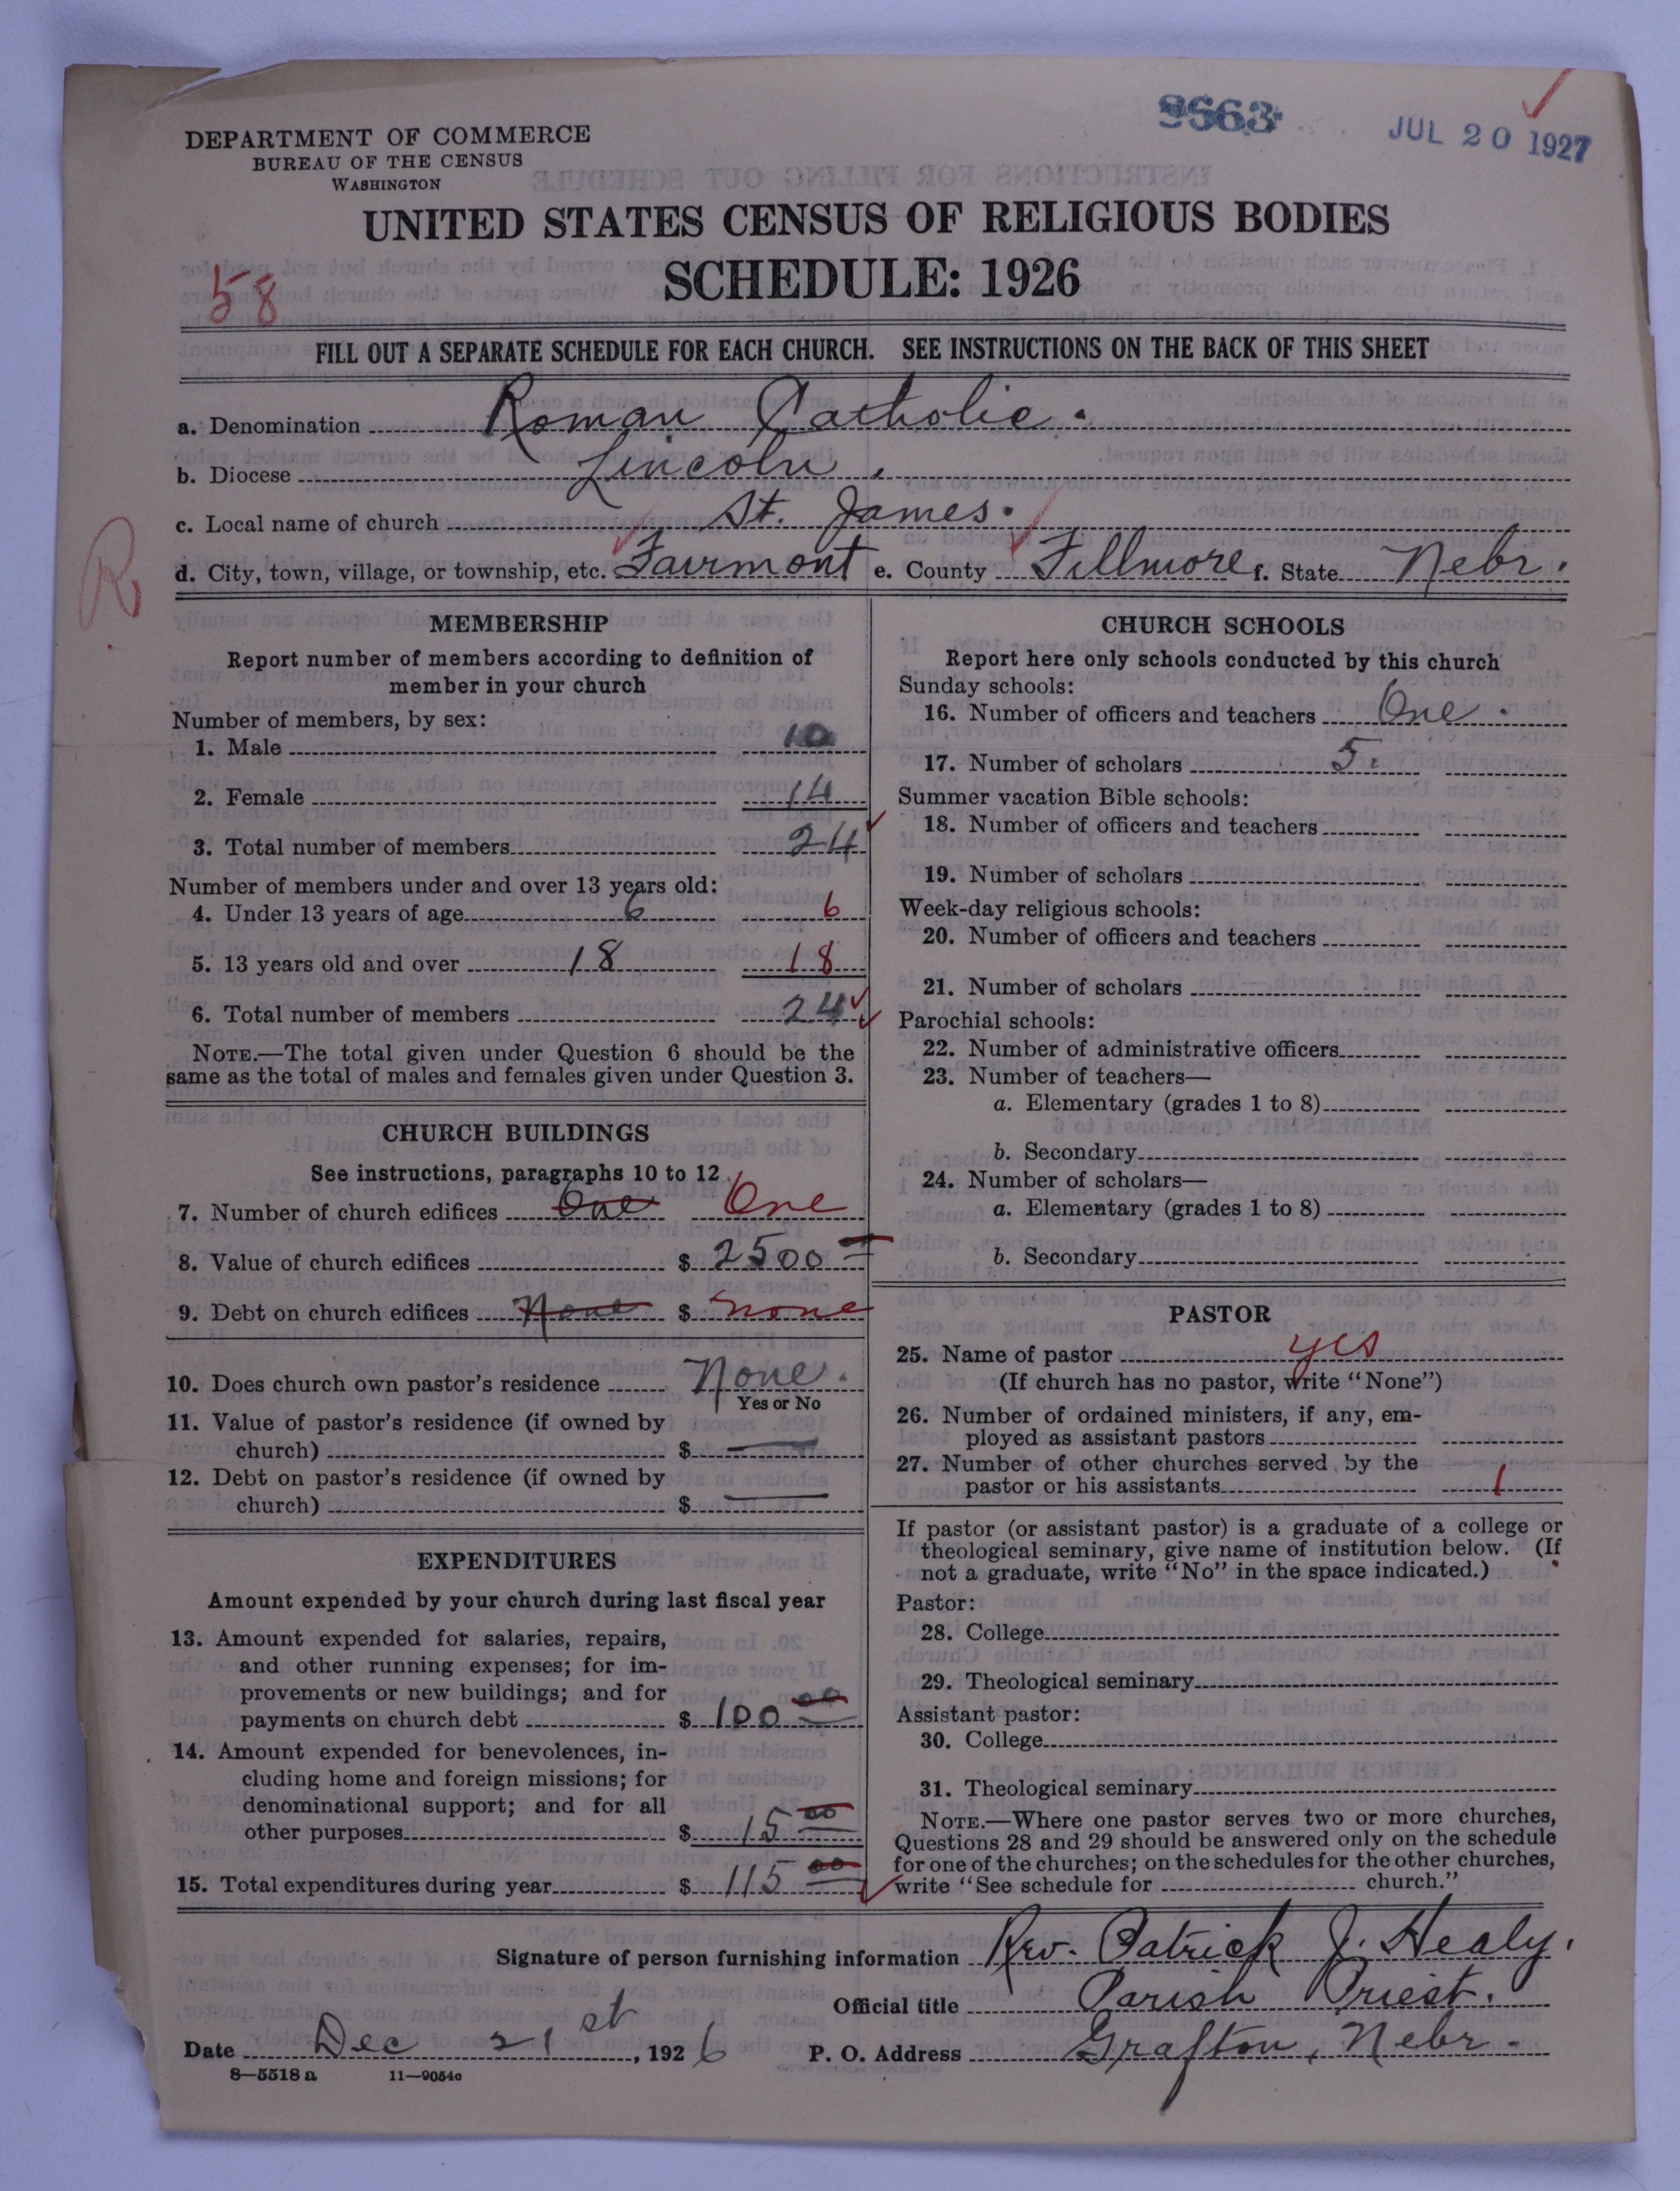 9563
JUL 20 1927
DEPARTMENT OF COMMERCE
BUREAU OF THE CENSUS
WASHINGTON
UNITED STATES CENSUS OF RELIGIOUS BODIES
SCHEDULE: 1926
58
FILL OUT A SEPARATE SCHEDULE FOR EACH CHURCH. SEE INSTRUCTIONS ON THE BACK OF THIS SHEET
a. Denomination Roman Catholic.
b. Diocese Lincoln.
c. Local name of church St. James.
R
d. City, town, village, or township, etc. Fairmont e. County Fillmore f. State Nebr.
MEMBERSHIP
Report number of members according to definition of
member in your church
Number of members, by sex:
1. Male 10
2. Female 14
3. Total number of members 24
Number of members under and over 13 years old:
4. Under 13 years of age 6 6
5. 13 years old and over 18 18
6. Total number of members 24
NOTE.—The total given under Question 6 should be the
same as the total of males and females given under Question 3.
CHURCH BUILDINGS
See instructions, paragraphs 10 to 12
7. Number of church edifices One One
8. Value of church edifices $ 2500
9. Debt on church edifices None $ none
10. Does church own pastor's residence None.
Yes or No
11. Value of pastor's residence (if owned by
church) $ —
12. Debt on pastor's residence (if owned by
church) $ —
EXPENDITURES
Amount expended by your church during last fiscal year
13. Amount expended for salaries, repairs,
and other running expenses; for im-
provements or new buildings; and for
payments on church debt $ 100 00
14. Amount expended for benevolences, in-
cluding home and foreign missions; for
denominational support; and for all
other purposes $ 15 00
15. Total expenditures during year $ 115 00
CHURCH SCHOOLS
Report here only schools conducted by this church
Sunday schools:
16. Number of officers and teachers One.
17. Number of scholars 5.
Summer vacation Bible schools:
18. Number of officers and teachers
19. Number of scholars
Week-day religious schools:
20. Number of officers and teachers
21. Number of scholars
Parochial schools:
22. Number of administrative officers
23. Number of teachers—
a. Elementary (grades 1 to 8)
b. Secondary
24. Number of scholars—
a. Elementary (grades 1 to 8)
b. Secondary
PASTOR
25. Name of pastor yes
(If church has no pastor, write "None")
26. Number of ordained ministers, if any, em-
ployed as assistant pastors
27. Number of other churches served by the
pastor or his assistants 1
If pastor (or assistant pastor) is a graduate of a college or
theological seminary, give name of institution below. (If
not a graduate, write "No" in the space indicated.)
Pastor:
28. College
29. Theological seminary
Assistant pastor:
30. College
31. Theological seminary
NOTE.—Where one pastor serves two or more churches,
Questions 28 and 29 should be answered only on the schedule
for one of the churches; on the schedules for the other churches,
write "See schedule for church."
Signature of person furnishing information Rev. Patrick J. Healy.
Official title Parish Priest.
Date Dec 21st, 1926 P. O. Address Grafton, Nebr.
8—5518 a 11—9054c